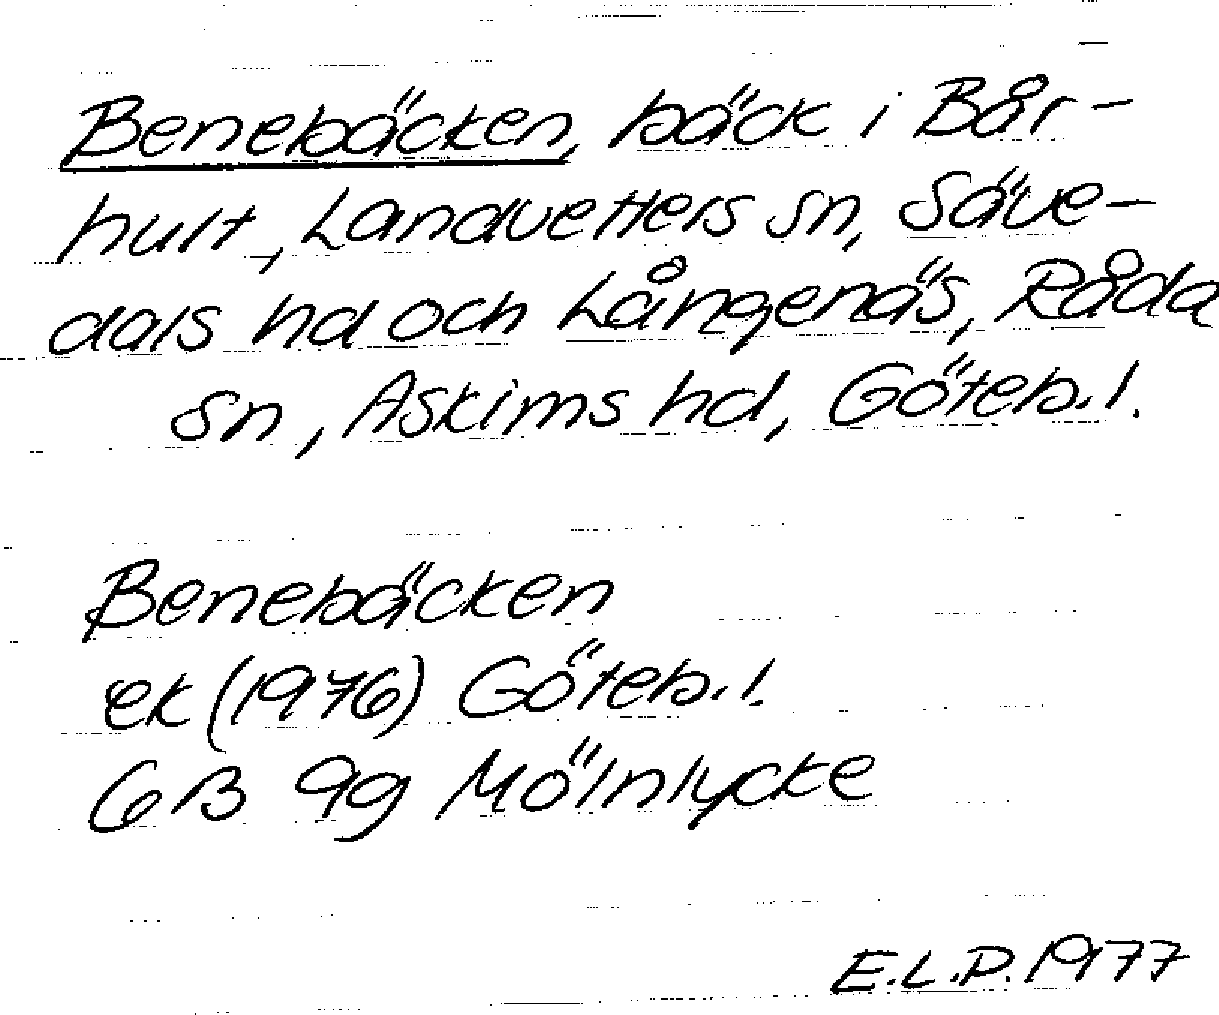 Benebäcken, bäck i Bår-
hult, Landvetters sn, Säve-
dals hd och Långenäs, Råda
sn, Askims hd, Göteb. l.
Benebäcken
ek (1976) Göteb. l.
6B 9g Mölnlycke
E.L.P. 1977